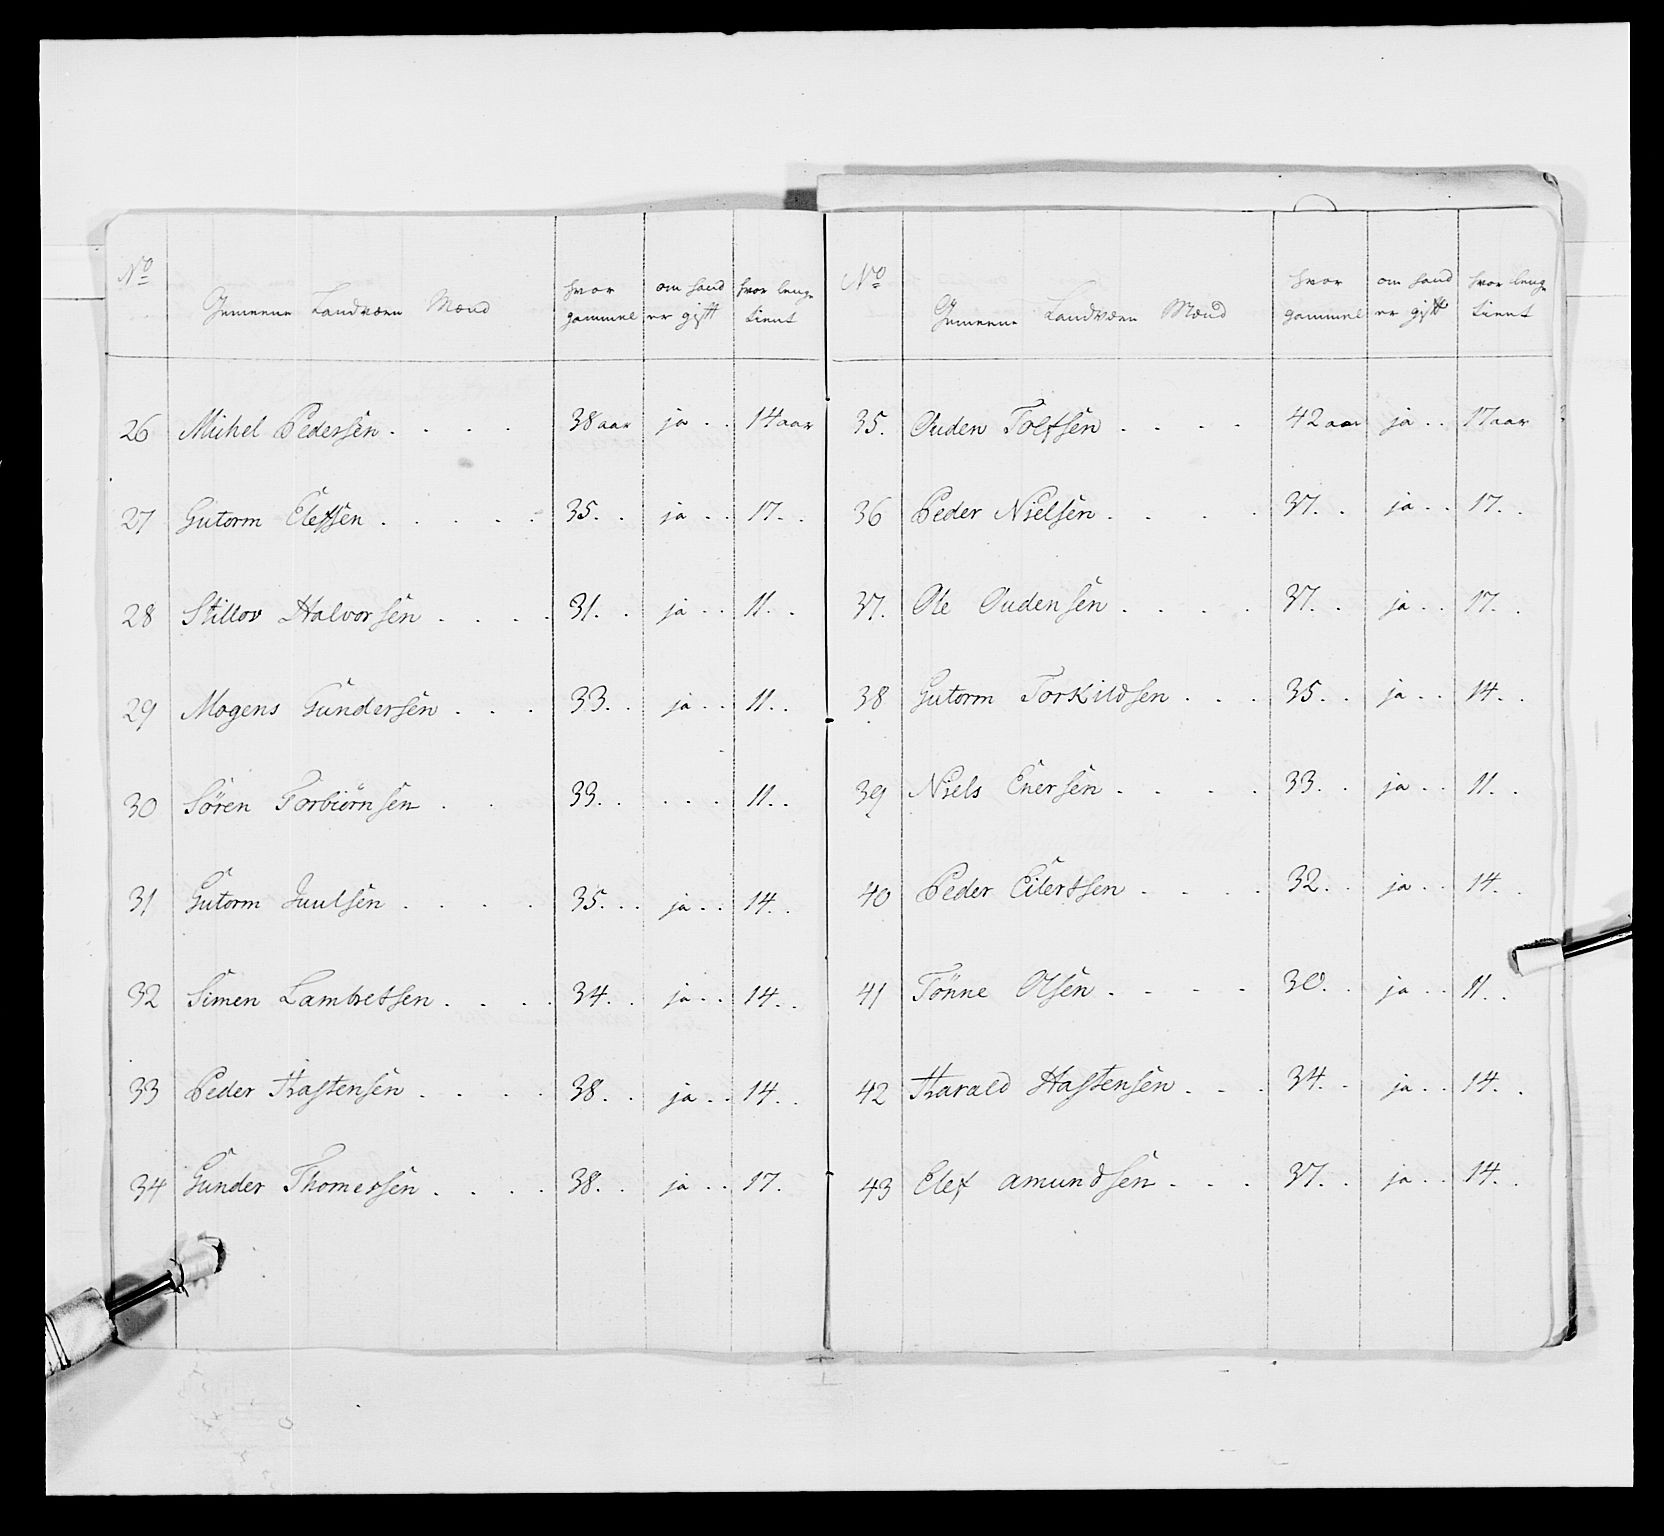 No Gemeene Landværn Mænd hvor gammel om hand er gift hvor lenge tient
26 Michel Pedersen . . . . 38 aar ja . . 14 aar
27 Gutorm Elefsen . . . . . 35 . . ja . . 17 . .
28 Stillov Halvorsen . . . . 31 . . ja . . 11 . .
29 Mogens Gundersen . . . 33 . . ja . . 11 . .
30 Sören Torbiörnsen . . 33 . . . . . 11 . .
31 Gutorm Juulsen . . . . 35 . . . ja . . 14 . .
32 Simen Lambretsen . . . . 34 . . ja . . 14 . .
33 Peder Thastensen . . . . 38 . . ja . . 14 . .
34 Gunder Thomessen . . . . 38 . . ja . . 17 .
No Gemeene Landværn Mænd hvor gammel om hand er gift hvor lenge tient
35. Ouden Tolfsen . . . . 42 aar ja . . 17 aar
36 Peder Nielsen . . . . 37 . . ja . . 17 . .
37. Ole Oudensen . . . . 37 . . ja . . 17 . .
38 Gutorm Torkildsen . . . 35 . . ja . . 14 . .
39 Niels Enersen . . . . 33 . . ja . . 11 . .
40 Peder Eilertsen . . . . 32 . . ja . . 14 . .
41 Tönne Olsen . . . . 30 . . ja . . 11 . .
42 Tharald Hastensen . . . 34 . . ja . . 14 . .
43 Elef amundsen . . . 37 . . ja . . 14 . .